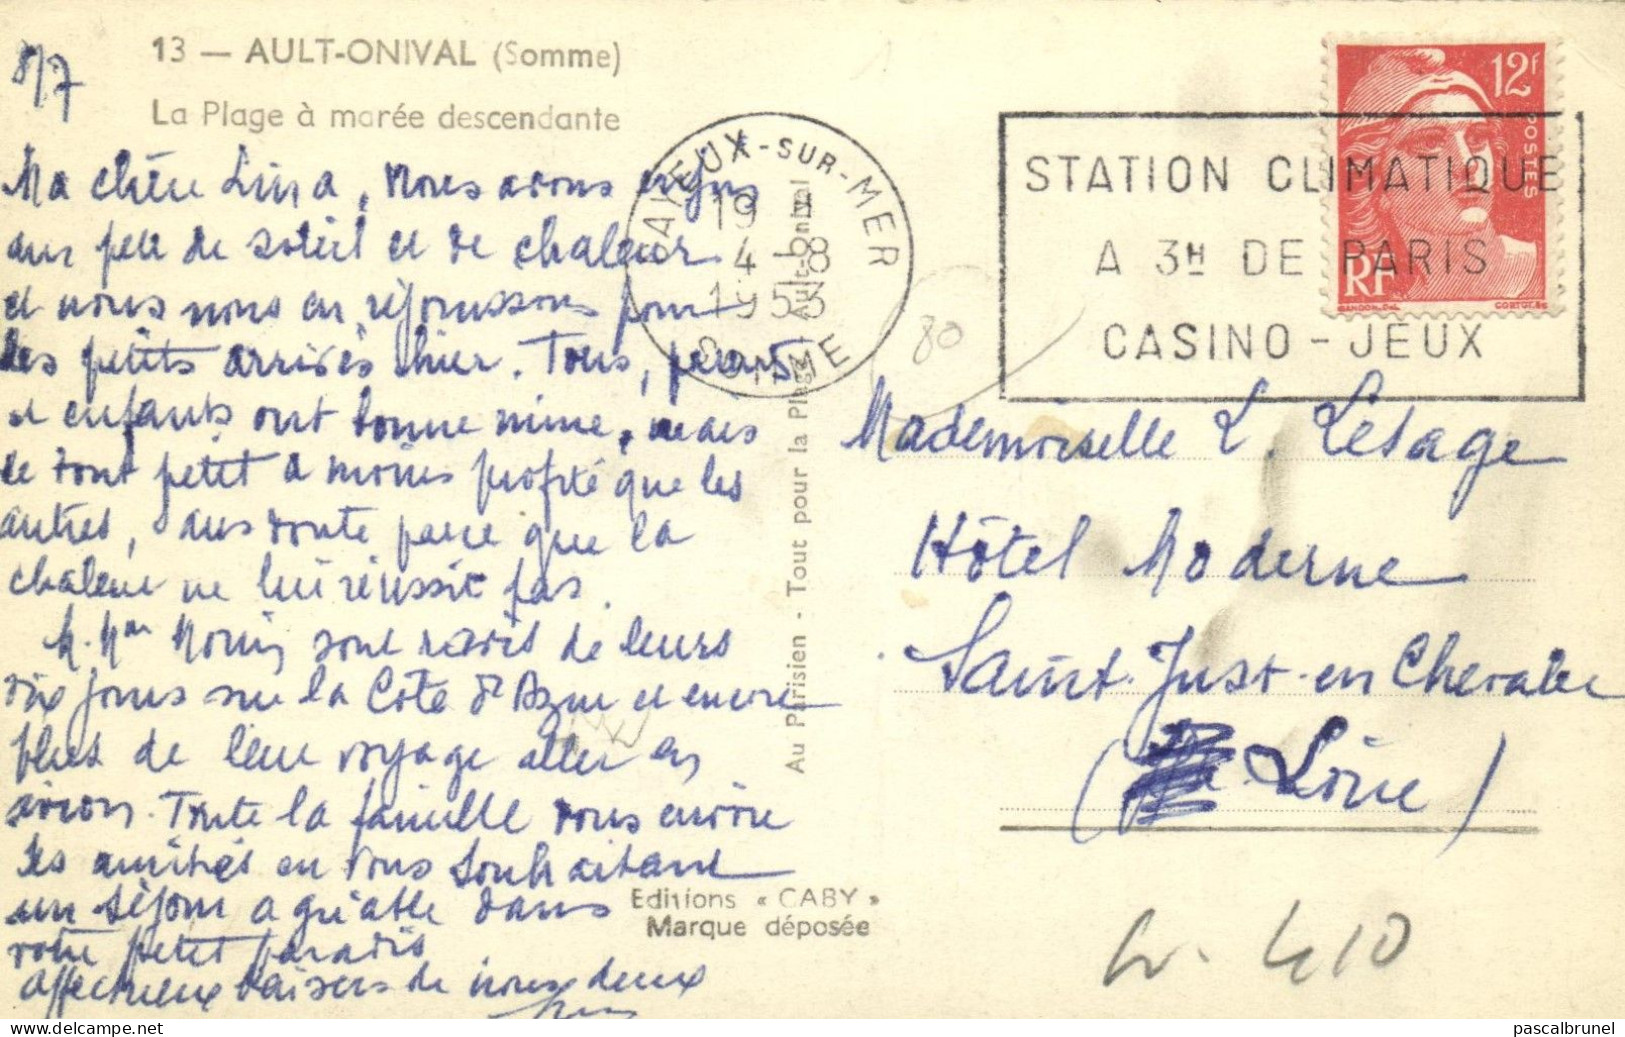 8/7
13 — AULT-ONIVAL (Somme)
La Plage à marée descendante
Ma chère Lina, nous avons enfin
un peu de soleil et de chaleur
et nous nous en réjouissons pour
les petits arrivés hier. Tous, parents
et enfants ont bonne mine, mais
le tout petit a moins profité que les
autres, sans doute parce que la
chaleur ne lui réussit pas.
M. Mme sont ravis de leurs
dix jours sur la Côte d'Azur et encore
plus de leur voyage aller en
avion. Toute la famille vous envoie
ses amitiés en vous souhaitant
un séjour agréable dans
votre petit paradis
affectueux baisers de nous deux
CAYEUX-SUR-MER
19 H
4-8
1953
SOMME
Au Parisien - Tout pour la Plage Ault-Onival
Editions « CABY »
Marque déposée
12F
POSTES
RF
GANDON.DEL
CORTOT.SC
STATION CLIMATIQUE
A 3H DE PARIS
CASINO - JEUX
80
Mademoiselle L. Lesage
Hôtel Moderne
Saint-Just-en Chevalet
(Loire)
410
pascalbrunel
Delcampe.net